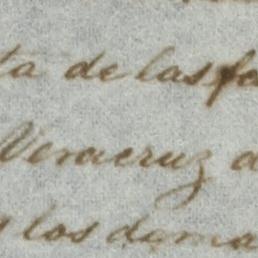 ta de las fa
Veracruz d
y los dema